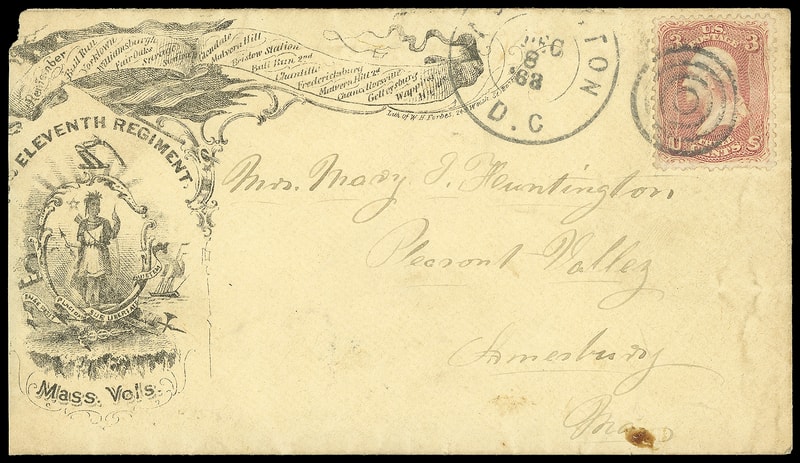 Remember
Bull Run
Yorktown
Williamsburg
Fair Oaks
Savage
Station
Glendale
Malvern Hill
Bristow Station
Bull Run 2nd
Chantilly
Fredericksburg
Malvern Hill 2d
Chancellorsville
Gettysburg
Wapping
Lith. of W. H. Forbes,
TON
D.C
DEC
8
'63
3 U.S. 3
POSTAGE
U S
CENTS
ELEVENTH REGIMENT.
ENSE PETIT PLACIDAM SUB LIBERTATE QUIETEM
Mass. Vols.
Mrs. Mary J. Huntington,
Pleasant Valley
Amesbury
Mass